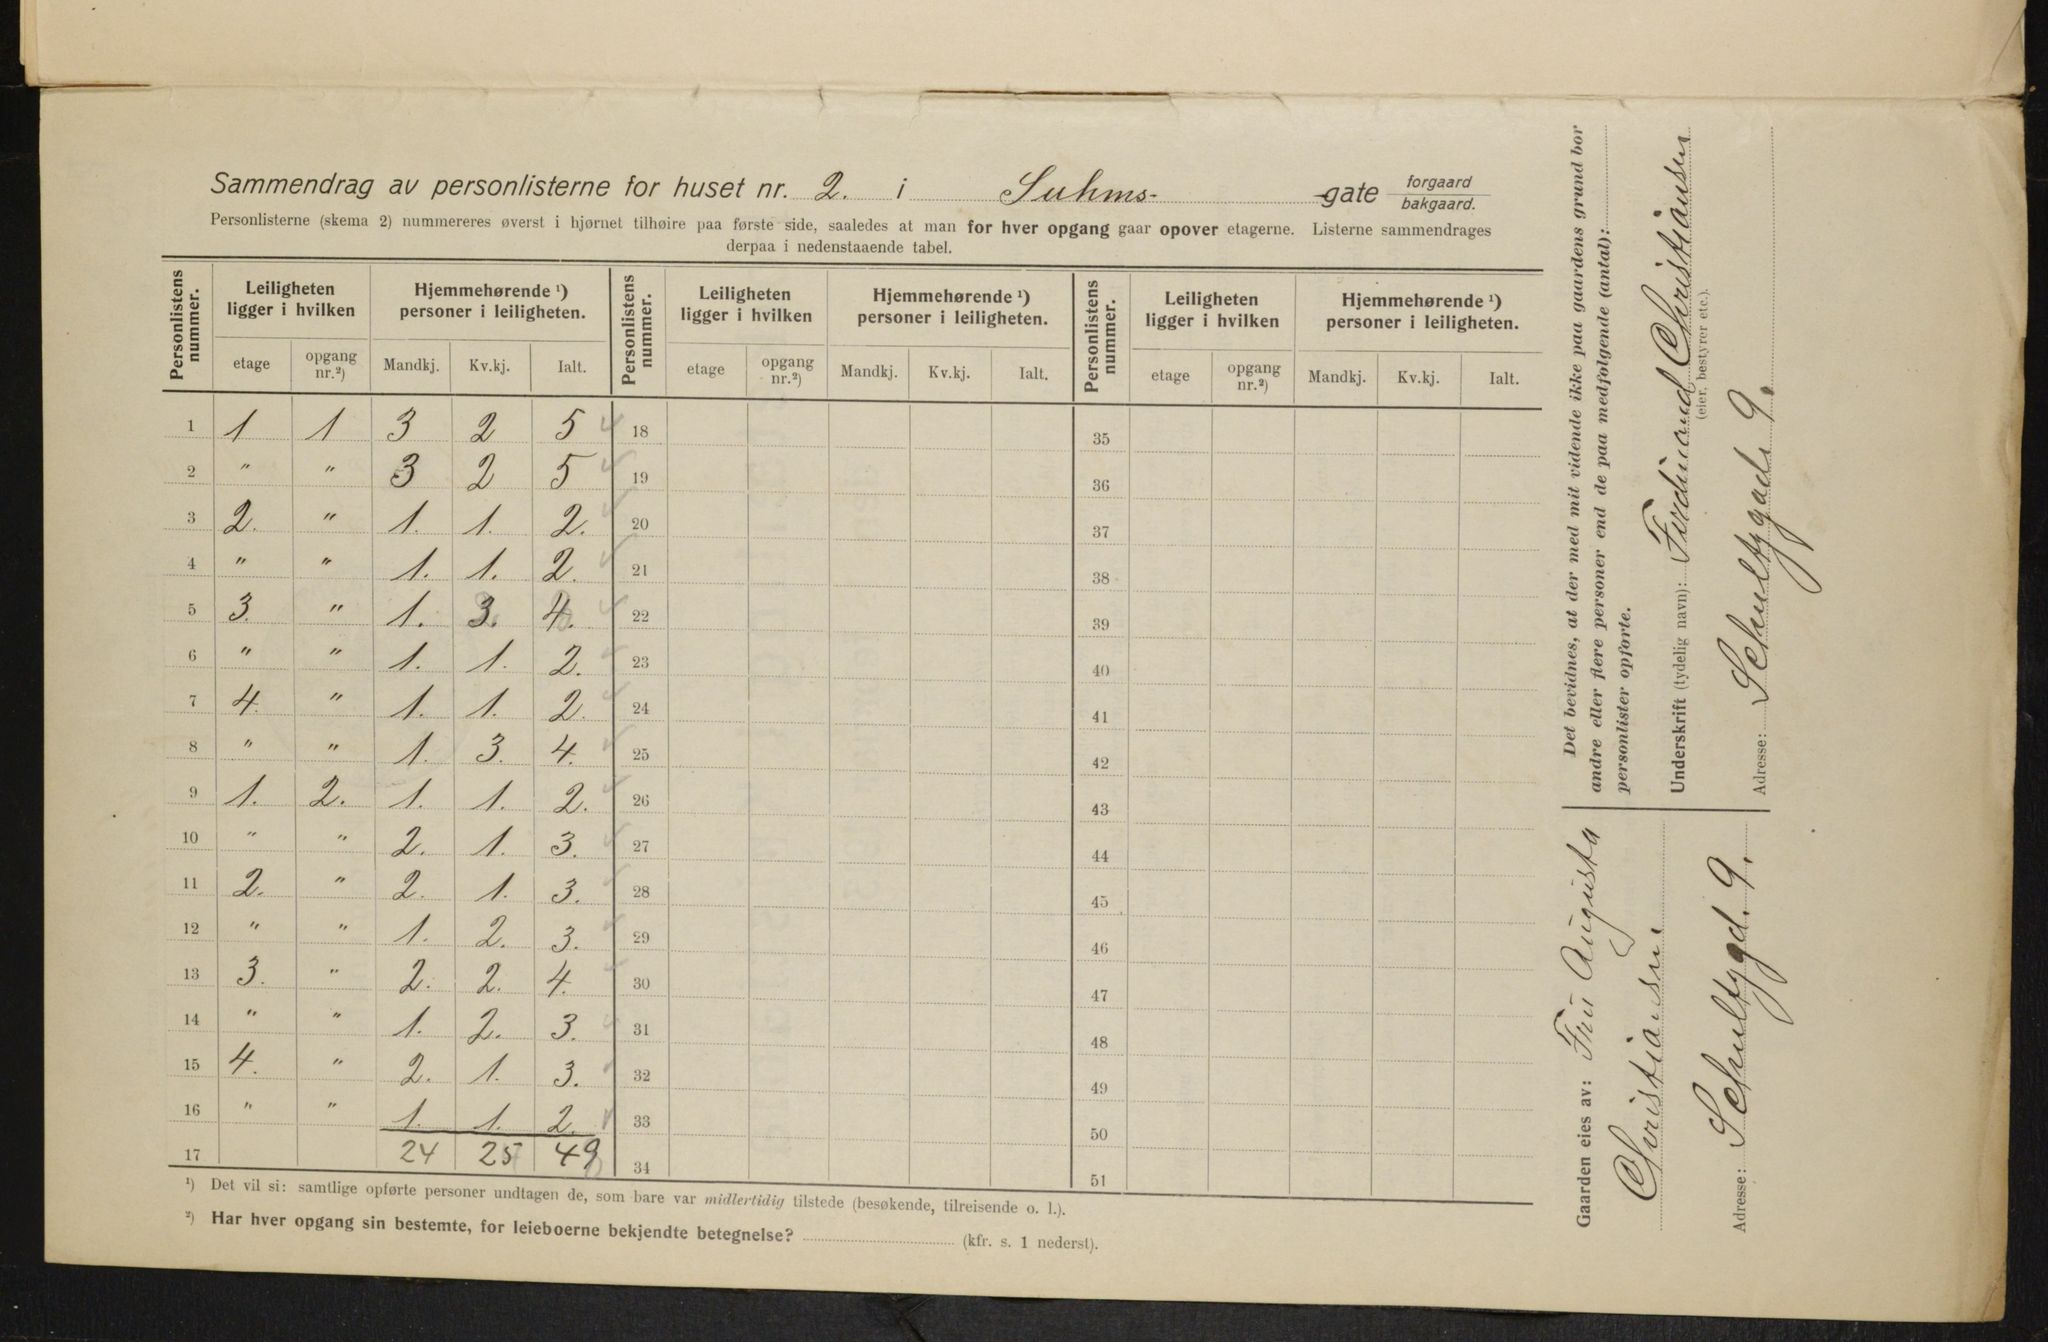 Sammendrag av personlisterne for huset nr. 2. i Suhms- gate forgaard bakgaard.
Personlisterne (skema 2) nummereres øverst i hjørnet tilhøire paa første side, saaledes at man for hver opgang gaar opover etagerne. Listerne sammendrages
derpaa i nedenstaaende tabel.
Personlistens nummer. Leiligheten ligger i hvilken Hjemmehørende ¹) personer i leiligheten. Personlistens nummer. Leiligheten ligger i hvilken Hjemmehørende ¹) personer i leiligheten. Personlistens nummer. Leiligheten ligger i hvilken Hjemmehørende ¹) personer i leiligheten.
etage opgang nr.²) Mandkj. Kv.kj. Ialt. etage opgang nr.²) Mandkj. Kv.kj. Ialt. etage opgang nr.²) Mandkj. Kv.kj. Ialt.
1 1 1 3 2 5 18 35
2 " " 3 2 5 19 36
3 2. " 1. 1. 2. 20 37
4 " " 1. 1. 2. 21 38
5 3. " 1. 3. 4. 22 39
6 " " 1. 1. 2. 23 40
7 4. " 1. 1. 2. 24 41
8 " " 1. 3. 4. 25 42
9 1. 2. 1. 1. 2. 26 43
10 " " 2. 1. 3. 27 44
11 2. " 2. 1. 3. 28 45
12 " " 1. 2. 3. 29 46
13 3. " 2. 2. 4. 30 47
14 " " 1. 2. 3. 31 48
15 4. " 2. 1. 3. 32 49
16 " " 1. 1. 2. 33 50
17 24 25 49 34 51
¹) Det vil si: samtlige opførte personer undtagen de, som bare var midlertidig tilstede (besøkende, tilreisende o. l.).
²) Har hver opgang sin bestemte, for leieboerne bekjendte betegnelse? (kfr. s. 1 nederst).
Det bevidnes, at der med mit vidende ikke paa gaardens grund bor
andre eller flere personer end de paa medfølgende (antal):
personlister opførte.
Underskrift (tydelig navn): Ferdinand Christiansen
(eier, bestyrer etc.).
Adresse: Schultzgade 9.
Gaarden eies av: Fru Augusta
Christiansen.
Adresse: Schultzgd. 9.